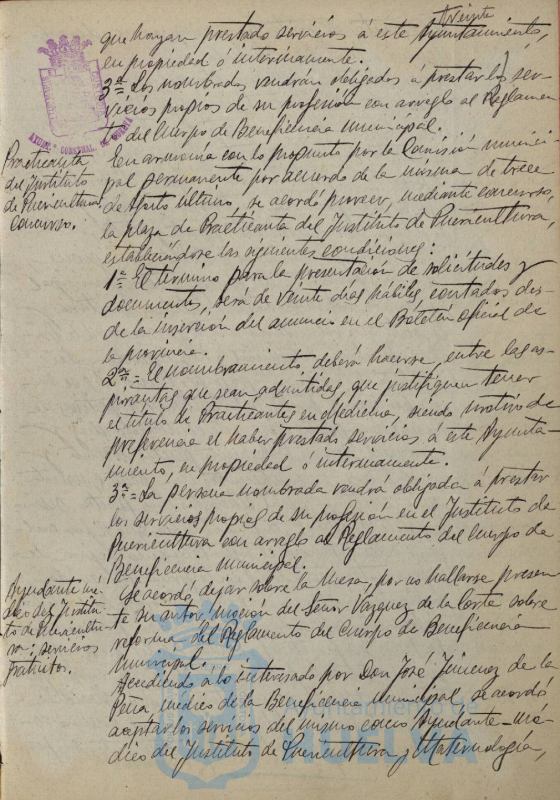 treinta
que hayan prestado servicios á este Ayuntamiento,
en propiedad ó interinamente.
3ª = Los nombrados vendrán obligados á prestar los ser-
vicios propios de su profesión con arreglo al Reglamen-
to del Cuerpo de Beneficencia municipal.
Practicanta
del Instituto
de Puericultura
Concurso.
En armonía con lo propuesto por la Comisión munici-
pal permanente por acuerdo de la misma de trece
de Agosto último, se acordó proveer, mediante concurso,
la plaza de Practicanta del Instituto de Puericultura,
estableciéndose las siguientes condiciones:
1ª = El término para la presentación de solicitudes y
documentos, será de veinte días hábiles, contados des-
de la inserción del anuncio en el Boletín oficial de
la provincia.
2ª = El nombramiento, deberá hacerse, entre las as-
pirantas que sean admitidas, que justifiquen tener
el título de Practicantes en Medicina, siendo motivo de
preferencia el haber prestado servicios á este Ayunta-
miento, en propiedad ó interinamente.
3ª = La persona nombrada vendrá obligada á prestar
los servicios propios de su profesión en el Instituto de
Puericultura con arreglo al Reglamento del Cuerpo de
Beneficencia municipal.
Se acordó, dejar sobre la mesa, por no hallarse presen-
te su autor, moción del Señor Vázquez de la Corte sobre
reforma del Reglamento del Cuerpo de Beneficencia
municipal.
Ayudante mé-
dico del Institu-
to de Puericultu-
ra: servicios
gratuitos.
Accediendo á lo interesado por Don José Jimenez de la
Peña, médico de la Beneficencia municipal, se acordó
aceptar los servicios del mismo como Ayudante-mé-
dico del Instituto de Puericultura y Maternología,
Ayuntamiento de
HUELVA